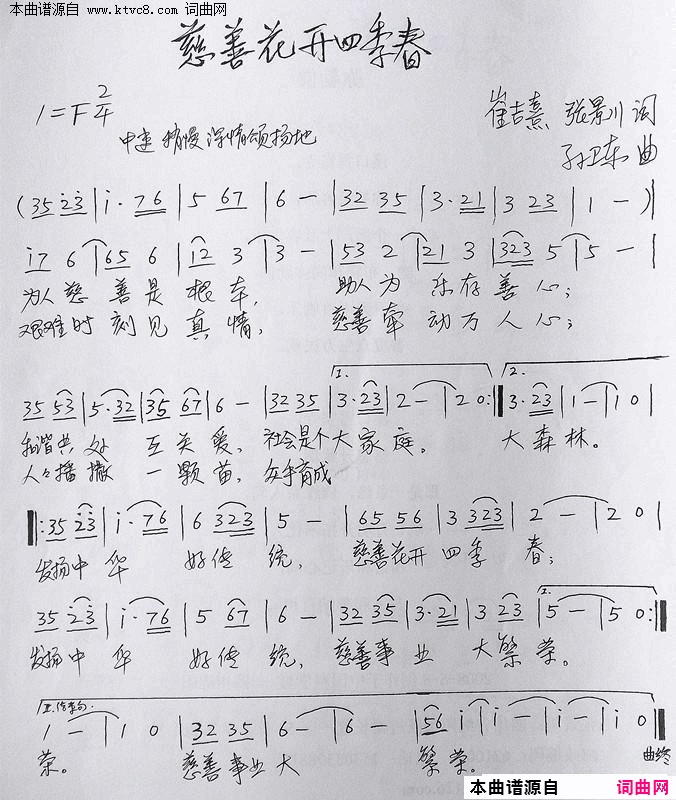 本曲谱源自 www.ktvc8.com 词曲网
慈善花开四季春
1=F 2/4
中速 稍慢 深情颂扬地
崔吉熹 张景川 词
孙卫东 曲
(35 23 | i· 76 | 5 67 | 6 - | 32 35 | 3· 21 | 3 23 | 1 - )|
i7 6 | 65 6 | i2 3 | 3 - | 53 2 | 21 3 | 323 5 | 5 - |
为人慈善是根本, 助人为乐存善心;
艰难时刻见真情, 慈善牵动万人心;
1. 2.
35 53 | 5· 32 | 35 67 | 6 - | 32 35 | 3· 23 | 2 - | 2 0 :| 3· 23 | 1 - | 1 0 |
和谐共处 互关爱, 社会是个大家庭。 大森林。
人人播撒 一颗苗, 众手育成
|: 35 23 | i· 76 | 6 323 | 5 - | 65 56 | 3 323 | 2 - | 2 0 |
发扬中华 好传统, 慈善花开四季春;
1.
35 23 | i· 76 | 5 67 | 6 - | 32 35 | 3· 21 | 3 23 | 5 - | 5 0 :|
发扬中华 好传统, 慈善事业 大繁荣。
1 - | 1 0 | 32 35 | 6 - | 6 - | 56 i | i - | i - | i 0 ‖
荣。 慈善事业大 繁荣。 曲终
本曲谱源自 词曲网